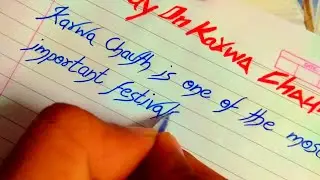 ay On Karwa Chau
Karwa Chauth is one of the mos
important festivals